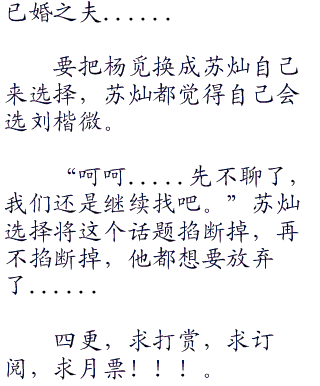 已婚之夫......
要把杨觅换成苏灿自己
来选择，苏灿都觉得自己会
选刘楷微。
“呵呵.....先不聊了，
我们还是继续找吧。”苏灿
选择将这个话题掐断掉，再
不掐断掉，他都想要放弃
了......
四更，求打赏，求订
阅，求月票！！！。